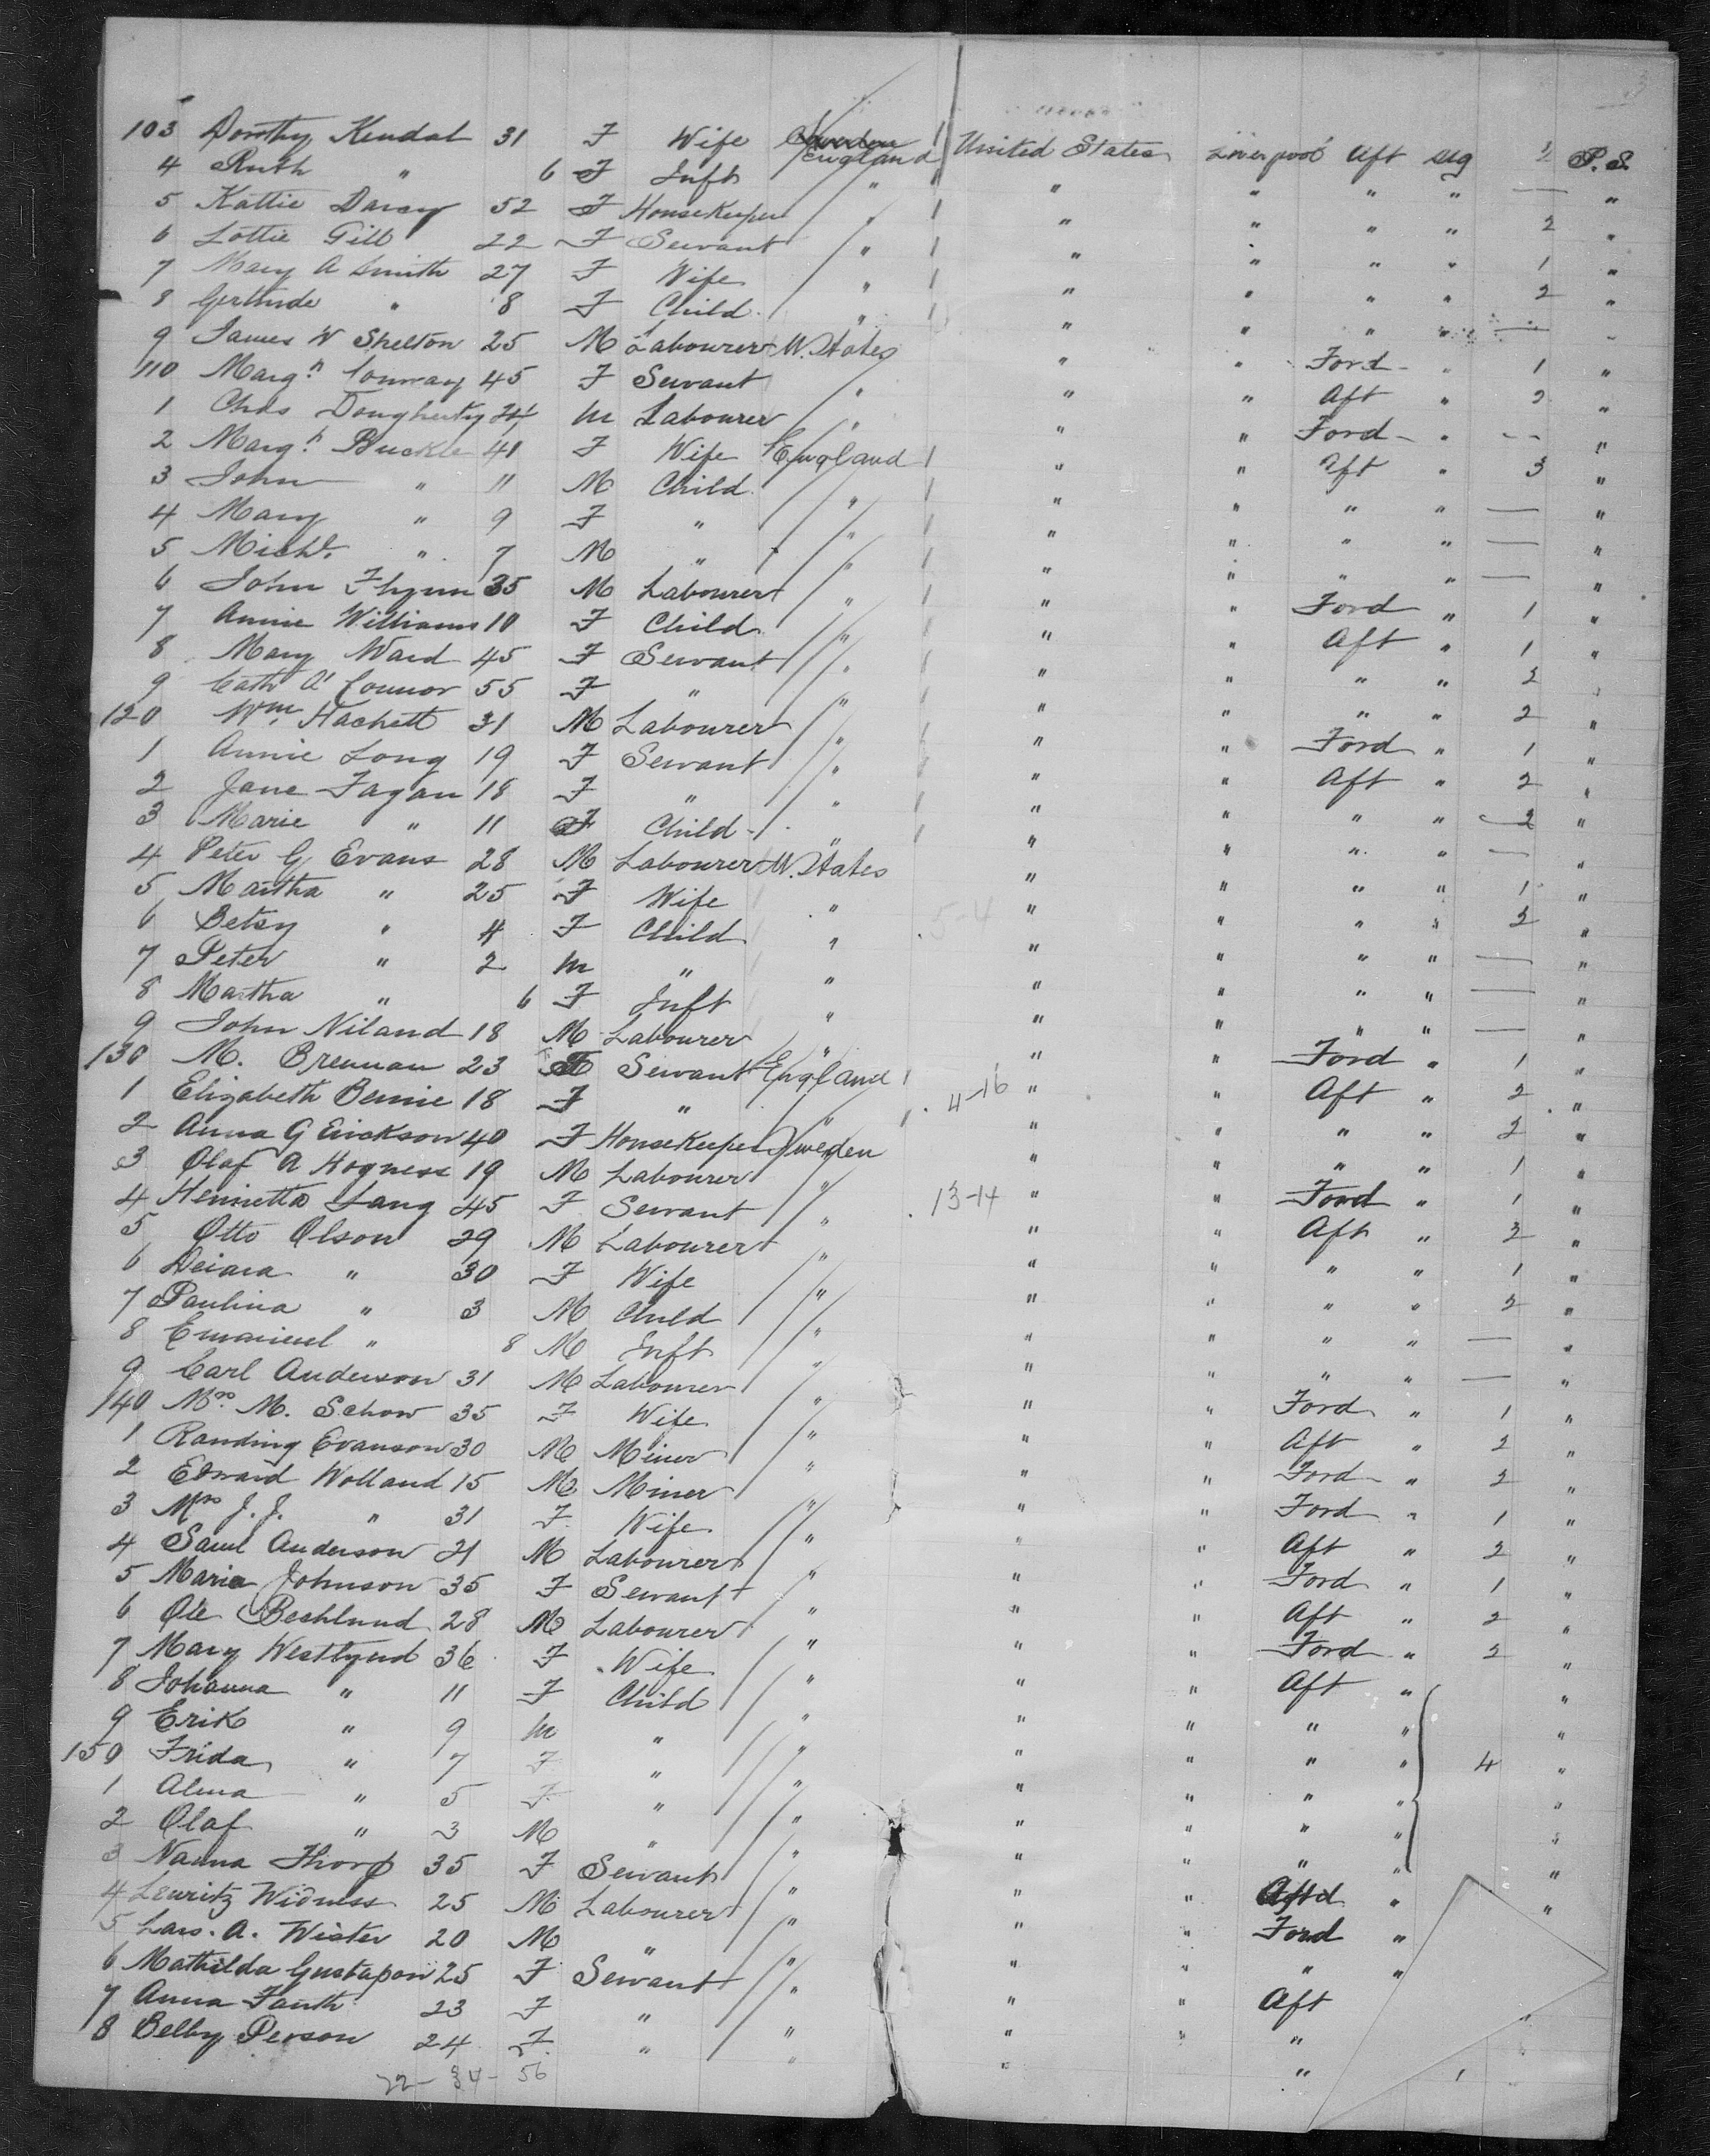 103 Dorothy Kendal 31 F Wife England 1 United States Liverpool Aft stg 2 P.S.
4 Ruth " 6 F Inft " " " " " " — "
5 Kattie Darcy 52 F HouseKeeper " 1 " " " " 2 "
6 Lottie Gill 22 F Servant " 1 " " " " 1 "
7 Mary A Smith 27 F Wife " 1 " " " " 2 "
8 Gertrude " 8 F Child " 1 " " " " — "
9 James W Shelton 25 M Labourer U. States " " Ford " 1 "
110 Margt. Conway 45 F Servant " " " Aft " 2 "
1 Chas Dougherty 24 M Labourer " " " Ford " — "
2 Margt. Buckle 40 F Wife England 1 " " Aft " 3 "
3 John " 11 M Child " 1 " " " " — "
4 Mary " 9 F " " 1 " " " " — "
5 Michl. " 7 M " " 1 " " " " — "
6 John Flynn 35 M Labourer " 1 " " Ford " 1 "
7 Annie Williams 10 F Child " 1 " " Aft " 1 "
8 Mary Ward 45 F Servant " 1 " " " " 2 "
9 Cath O'Connor 55 F " " 1 " " " " 2 "
120 Wm. Hackett 31 M Labourer " 1 " " Ford " 1 "
1 Annie Long 19 F Servant " 1 " " Aft " 2 "
2 Jane Fagan 18 F " " 1 " " " " 2 "
3 Marie " 11 F Child " 1 " " " " — "
4 Peter G Evans 28 M Labourer U. States " " " " 1 "
5 Martha " 25 F Wife " " " " " 2 "
6 Betsy " 4 F Child " 54 " " " " — "
7 Peter " 2 M " " " " " " — "
8 Martha " 6 F Inft " " " " " — "
9 John Niland 18 M Labourer " " " Ford " 1 "
130 M. Brennan 23 F Servant England 1 " " Aft " 2 "
1 Elizabeth Bennie 18 F " " 1 4-16 " " " " 2 "
2 Anna G Erickson 40 F HouseKeeper Sweden " " " " 1 "
3 Olaf A Hogness 19 M Labourer " " " Ford " 1 "
4 Henrietta Lang 45 F Servant " 13-14 " " Aft " 2 "
5 Otto Olson 29 M Labourer " " " " " 1 "
6 " 30 F Wife " " " " " 2 "
7 Paulina " 3 M Child " " " " " — "
8 Emanuel " 8 M Inft " " " " " — "
9 Carl Anderson 31 M Labourer " " " Ford " 1 "
140 Mrs. M. Schow 35 F Wife " " " Aft " 2 "
1 Randing Evanson 30 M Miner " " " Ford " 2 "
2 Edward Wolland 15 M Miner " " " Ford " 1 "
3 Mrs J. J. " 31 F Wife " " " Aft " 2 "
4 Saml Anderson 21 M Labourer " " " Ford " 1 "
5 Maria Johnson 35 F Servant " " " Aft " 2 "
6 Ole Bechlund 28 M Labourer " " " Ford " 2 "
7 Mary Westlynd 36 F Wife " " " Aft " "
8 Johanna " 11 F Child " " " " " "
9 Erik " 9 M " " " " " " 4 "
150 Frida " 7 F " " " " " " "
1 Alma " 5 F " " " " " " "
2 Olaf " 3 M " " " " " " "
3 Nanna Thorp 35 F Servant " " " Aft "
4 Lewritz Widness 25 M Labourer " " " Ford "
5 Lars. A. Wister 20 M " " " " " "
6 Mathilda Gustafson 25 F Servant " " " Aft
7 Anna Fanth 23 F " " " " " "
8 Belby Person 24 F " " " " " 1
22- 34- 56